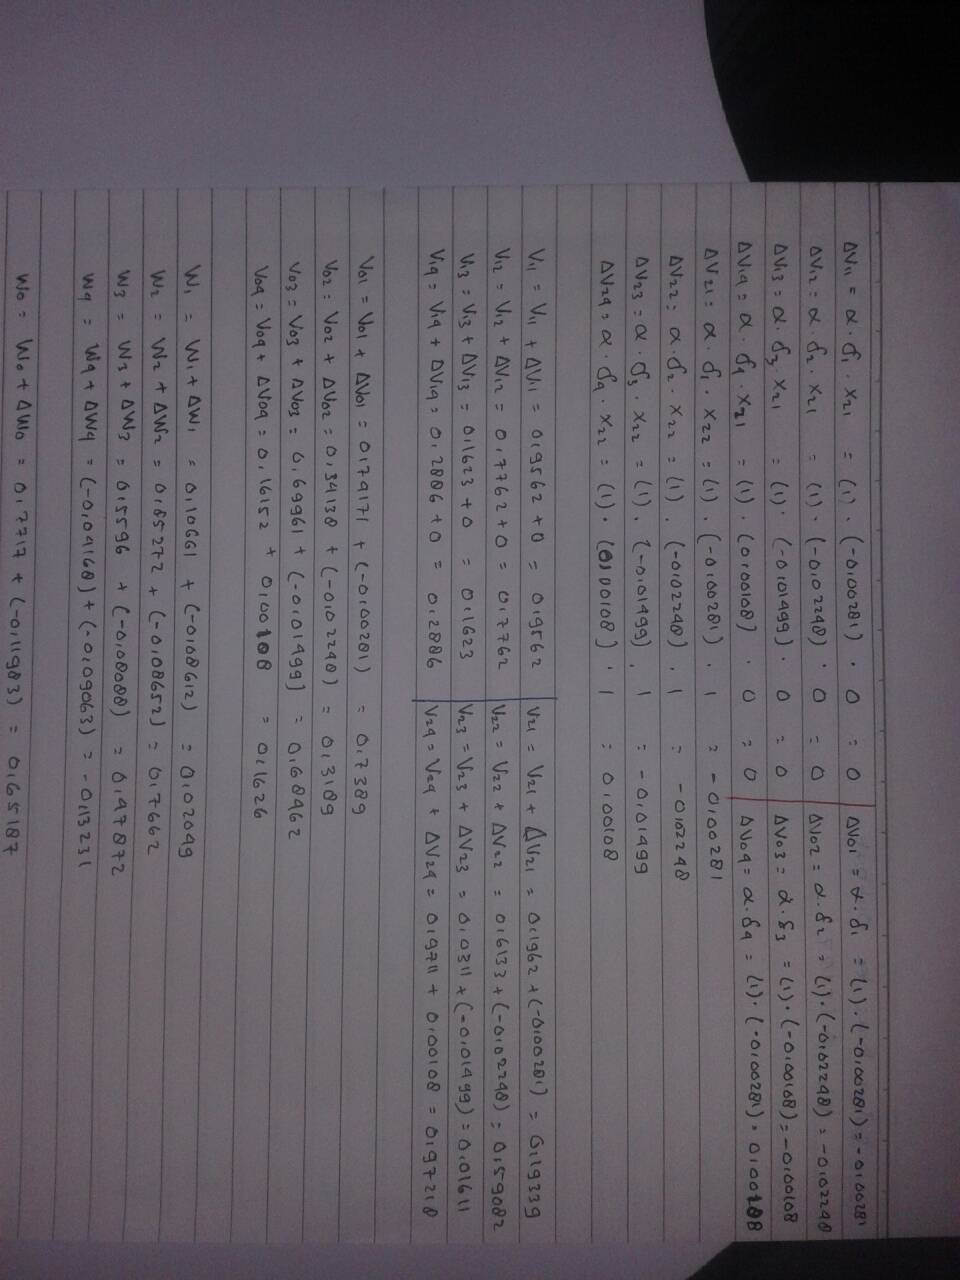 ΔV11 = α . δ1 . X21 = (1) . (-0,00281) . 0 = 0
ΔV12 = α . δ2 . X21 = (1) . (-0,02248) . 0 = 0
ΔV13 = α . δ3 . X21 = (1) . (-0,01499) . 0 = 0
ΔV14 = α . δ4 . X21 = (1) . (0,00108) . 0 = 0
ΔV21 = α . δ1 . X22 = (1) . (-0,00281) . 1 = -0,00281
ΔV22 = α . δ2 . X22 = (1) . (-0,02248) . 1 = -0,02248
ΔV23 = α . δ3 . X22 = (1) . (-0,01499) . 1 = -0,01499
ΔV24 = α . δ4 . X22 = (1) . (0,00108) . 1 = 0,00108
ΔV01 = α . δ1 = (1) . (-0,00281) = -0,00281
ΔV02 = α . δ2 = (1) . (-0,02248) = -0,02248
ΔV03 = α . δ3 = (1) . (-0,00108) = -0,00108
ΔV04 = α . δ4 = (1) . (-0,00281) = 0,00108
V11 = V11 + ΔV11 = 0,9562 + 0 = 0,9562
V12 = V12 + ΔV12 = 0,7762 + 0 = 0,7762
V13 = V13 + ΔV13 = 0,1623 + 0 = 0,1623
V14 = V14 + ΔV14 = 0,2886 + 0 = 0,2886
V21 = V21 + ΔV21 = 0,1962 + (-0,00281) = 0,19339
V22 = V22 + ΔV22 = 0,6133 + (-0,02248) = 0,59082
V23 = V23 + ΔV23 = 0,0311 + (-0,01499) = 0,01611
V24 = V24 + ΔV24 = 0,9711 + 0,00108 = 0,97218
V01 = V01 + ΔV01 = 0,74171 + (-0,00281) = 0,7389
V02 = V02 + ΔV02 = 0,34138 + (-0,02248) = 0,3189
V03 = V03 + ΔV03 = 0,69961 + (-0,01499) = 0,68462
V04 = V04 + ΔV04 = 0,16152 + 0,00108 = 0,1626
W1 = W1 + ΔW1 = 0,10661 + (-0,08612) = 0,02049
W2 = W2 + ΔW2 = 0,85272 + (-0,08652) = 0,7662
W3 = W3 + ΔW3 = 0,5596 + (-0,08088) = 0,47872
W4 = W4 + ΔW4 = (-0,04168) + (-0,09063) = -0,13231
W0 = W0 + ΔW0 = 0,7717 + (-0,11983) = 0,65187